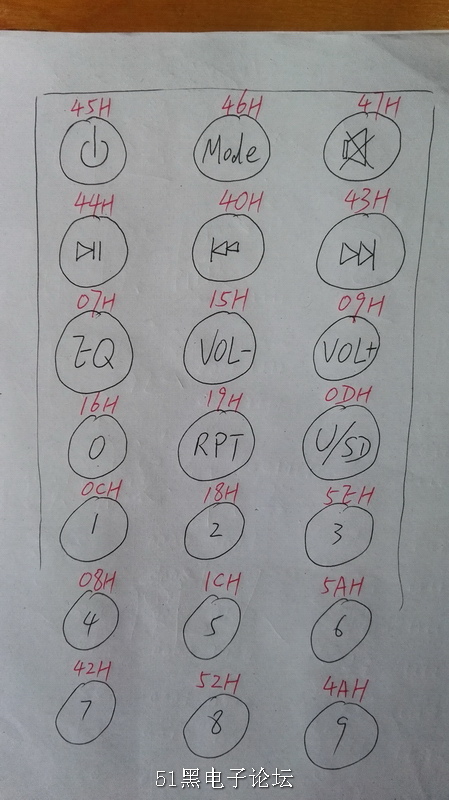 45H 46H 47H
Mode
44H 40H 43H
07H 15H 09H
EQ VOL- VOL+
16H 19H 0DH
0 RPT U/SD
0CH 18H 5EH
1 2 3
08H 1CH 5AH
4 5 6
42H 52H 4AH
7 8 9
51黑电子论坛